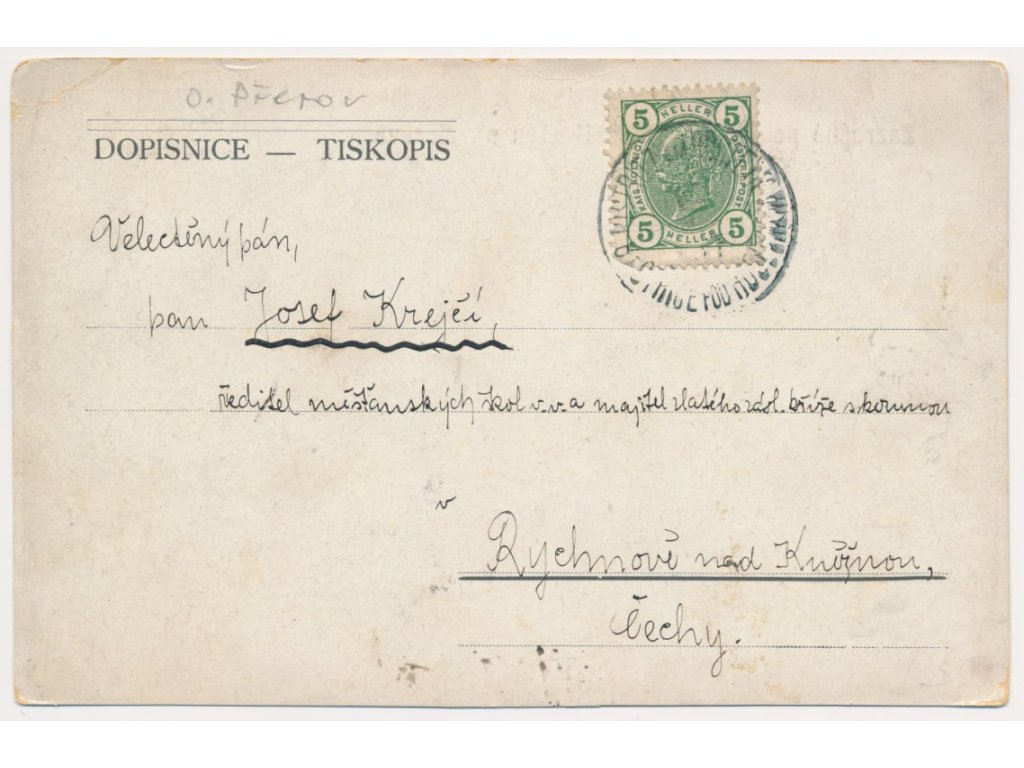 o. Přerov
DOPISNICE — TISKOPIS
5 HELLER 5
KAIS. KOENIGL. OESTERR. POST.
5 HELLER 5
POD HOS
Velectěný pán,
pan Josef Krejčí,
ředitel měšťanských škol v. v. a majitel zlatého zásl. kříže s korunou
v
Rychnově nad Kněžnou,
Čechy.